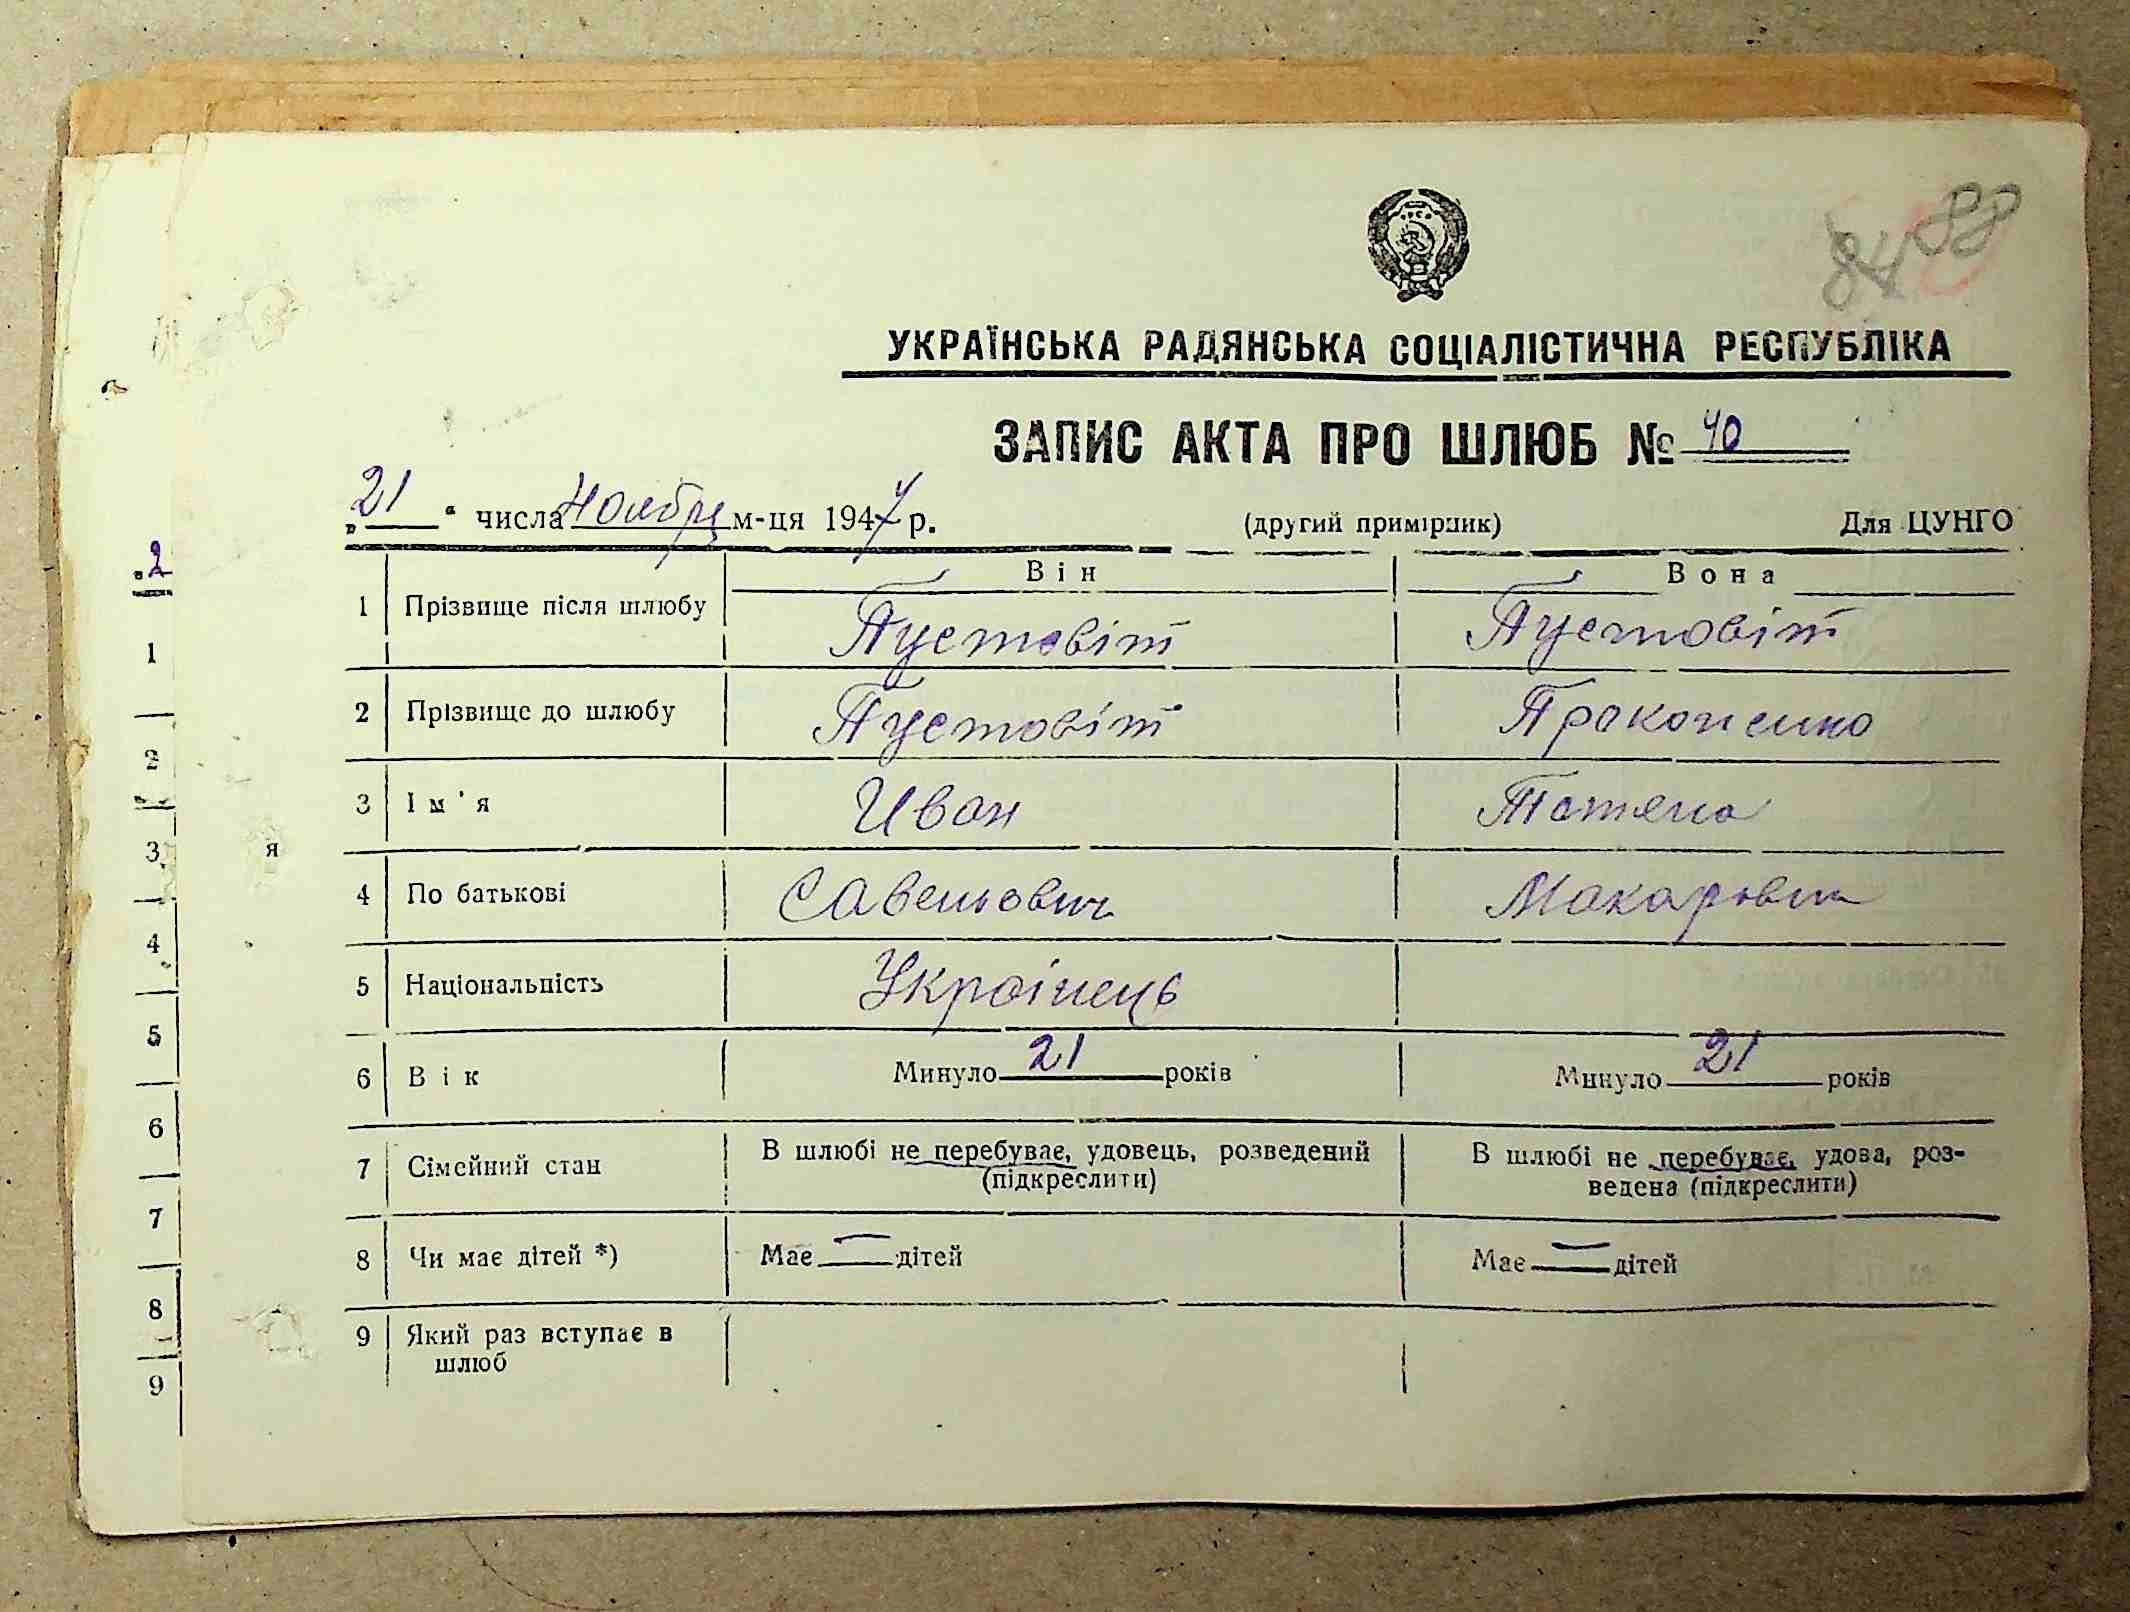 84 88
УКРАЇНСЬКА РАДЯНСЬКА СОЦІАЛІСТИЧНА РЕСПУБЛІКА
ЗАПИС АКТА ПРО ШЛЮБ № 40
„21“ числа Ноября м-ця 1947 р. (другий примірник) Для ЦУНГО
Він Вона
1 Прізвище після шлюбу Пустовіт Пустовіт
2 Прізвище до шлюбу Пустовіт Прокопенко
3 Ім'я Иван Татяна
4 По батькові Савельович Макаровна
5 Національність Украінець
6 Вік Минуло 21 років Минуло 21 років
7 Сімейний стан В шлюбі не перебуває, удовець, розведений В шлюбі не перебуває, удова, роз-
(підкреслити) ведена (підкреслити)
8 Чи має дітей *) Має — дітей Має — дітей
9 Який раз вступає в
шлюб
„2
1
2
3 я
4
5
6
7
8
9